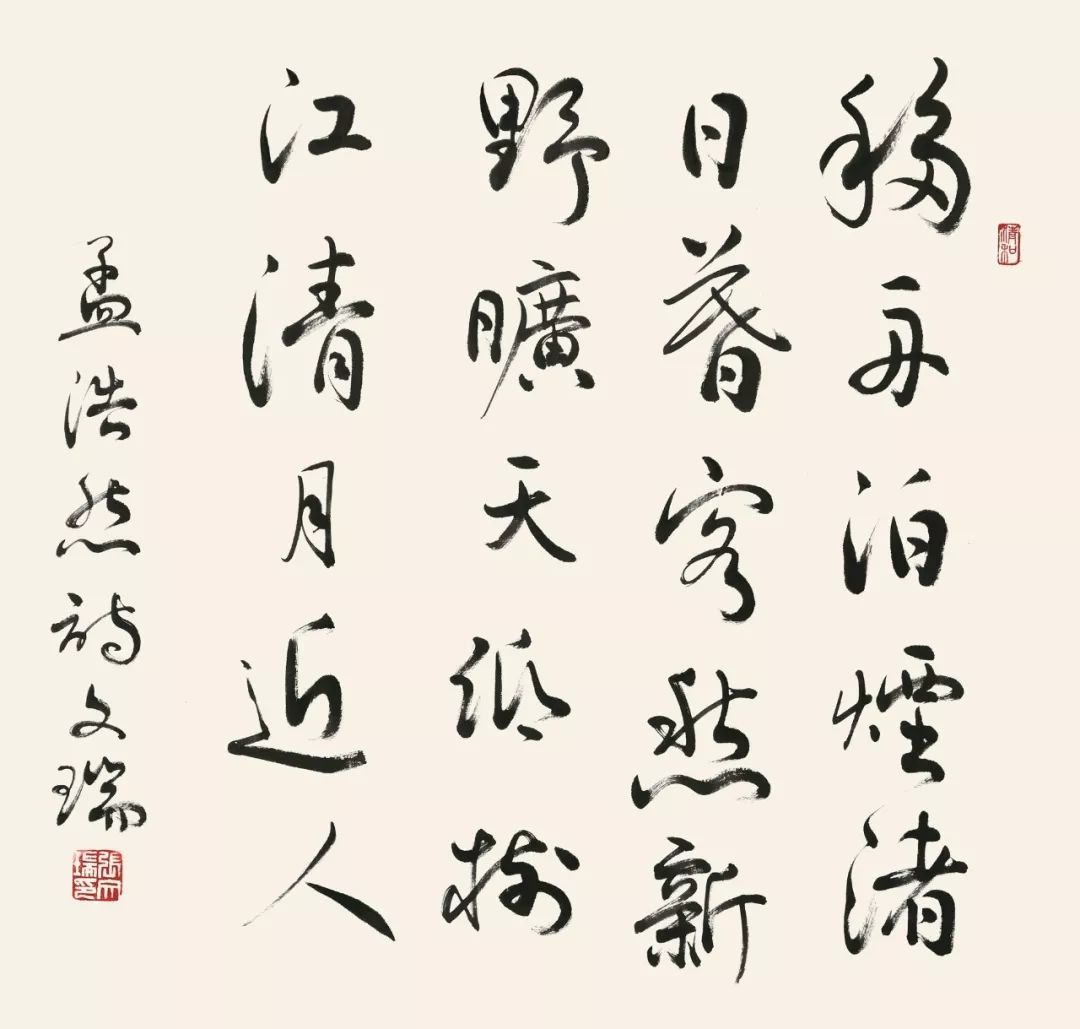 清和
移舟泊煙渚
日暮客愁新
野曠天低樹
江清月近人
孟浩然詩文瑞
張文瑞印